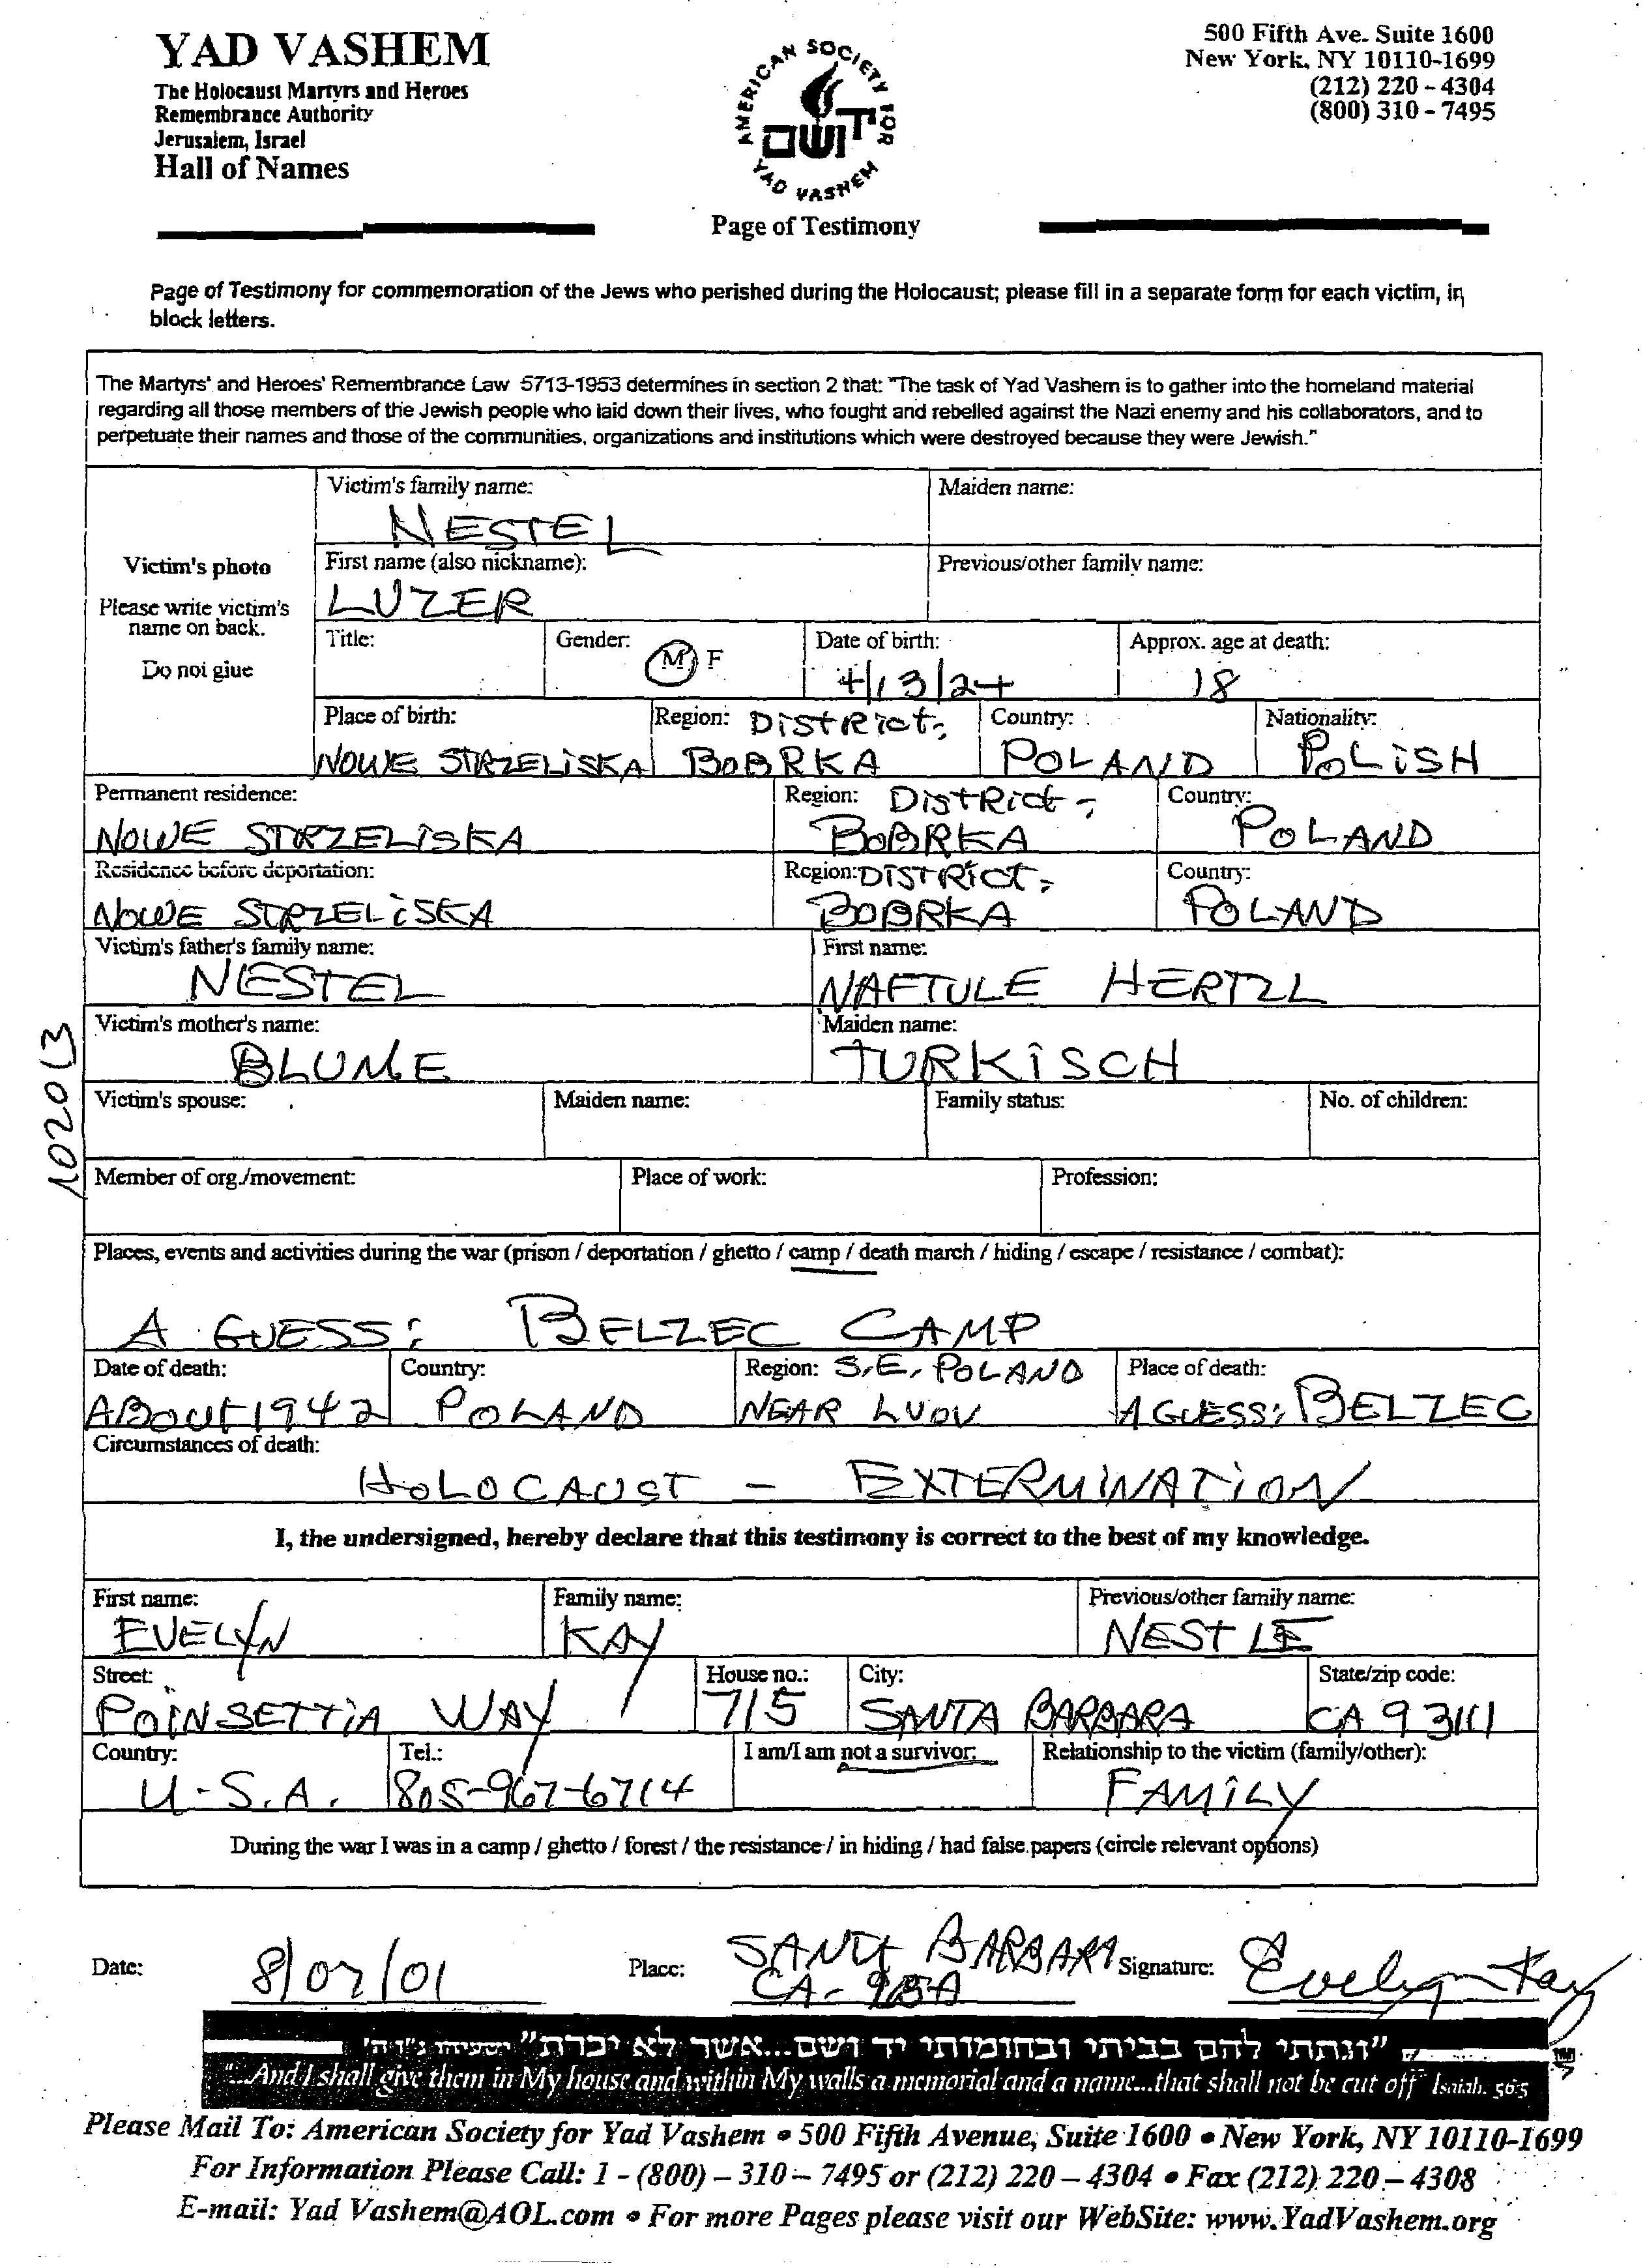 YAD VASHEM
The Holocaust Martyrs and Heroes
Remembrance Authority
Jerusalem, Israel
Hall of Names
AMERICAN SOCIETY FOR
יד ושם
YAD VASHEM
Page of Testimony
500 Fifth Ave. Suite 1600
New York, NY 10110-1699
(212) 220 - 4304
(800) 310 - 7495
Page of Testimony for commemoration of the Jews who perished during the Holocaust; please fill in a separate form for each victim, in
block letters.
The Martyrs' and Heroes' Remembrance Law 5713-1953 determines in section 2 that: "The task of Yad Vashem is to gather into the homeland material
regarding all those members of the Jewish people who laid down their lives, who fought and rebelled against the Nazi enemy and his collaborators, and to
perpetuate their names and those of the communities, organizations and institutions which were destroyed because they were Jewish."
Victim's photo
Please write victim's
name on back.
Do not glue
Victim's family name: Maiden name:
NESTEL
First name (also nickname): Previous/other family name:
LUZER
Title: Gender: M F Date of birth: Approx. age at death:
4/13/24 18
Place of birth: Region: DISTRICT, Country: Nationality:
NOWE STRZELISKA BOBRKA POLAND POLISH
Permanent residence: Region: DISTRICT, Country:
NOWE STRZELISKA BOBRKA POLAND
Residence before deportation: Region: DISTRICT, Country:
NOWE STRZELISKA BOBRKA POLAND
Victim's father's family name: First name:
NESTEL NAFTULE HERTZL
Victim's mother's name: Maiden name:
BLUME TURKISCH
1020
Victim's spouse: Maiden name: Family status: No. of children:
Member of org./movement: Place of work: Profession:
Places, events and activities during the war (prison / deportation / ghetto / camp / death march / hiding / escape / resistance / combat):
A GUESS: BELZEC CAMP
Date of death: Country: Region: S.E. POLAND Place of death:
ABOUT 1942 POLAND NEAR LVOV A GUESS: BELZEC
Circumstances of death:
HOLOCAUST - EXTERMINATION
I, the undersigned, hereby declare that this testimony is correct to the best of my knowledge.
First name: Family name: Previous/other family name:
EVELYN KAY NESTLE
Street: House no.: City: State/zip code:
POINSETTIA WAY 715 SANTA BARBARA CA 93111
Country: Tel.: I am/I am not a survivor: Relationship to the victim (family/other):
U.S.A. 805-967-6714 FAMILY
During the war I was in a camp / ghetto / forest / the resistance / in hiding / had false papers (circle relevant options)
Date: 8/07/01 Place: SANTA BARBARA Signature: Evelyn Kay
CA-
"ונתתי להם בביתי ובחומותי יד ושם...אשר לא יכרת" ישעיהו נ"ו ה'
"...And I shall give them in My house and within My walls a memorial and a name...that shall not be cut off" Isaiah. 56:5
Please Mail To: American Society for Yad Vashem • 500 Fifth Avenue, Suite 1600 • New York, NY 10110-1699
For Information Please Call: 1 - (800) – 310 – 7495 or (212) 220 – 4304 • Fax (212) 220 – 4308
E-mail: Yad Vashem@AOL.com • For more Pages please visit our WebSite: www.YadVashem.org